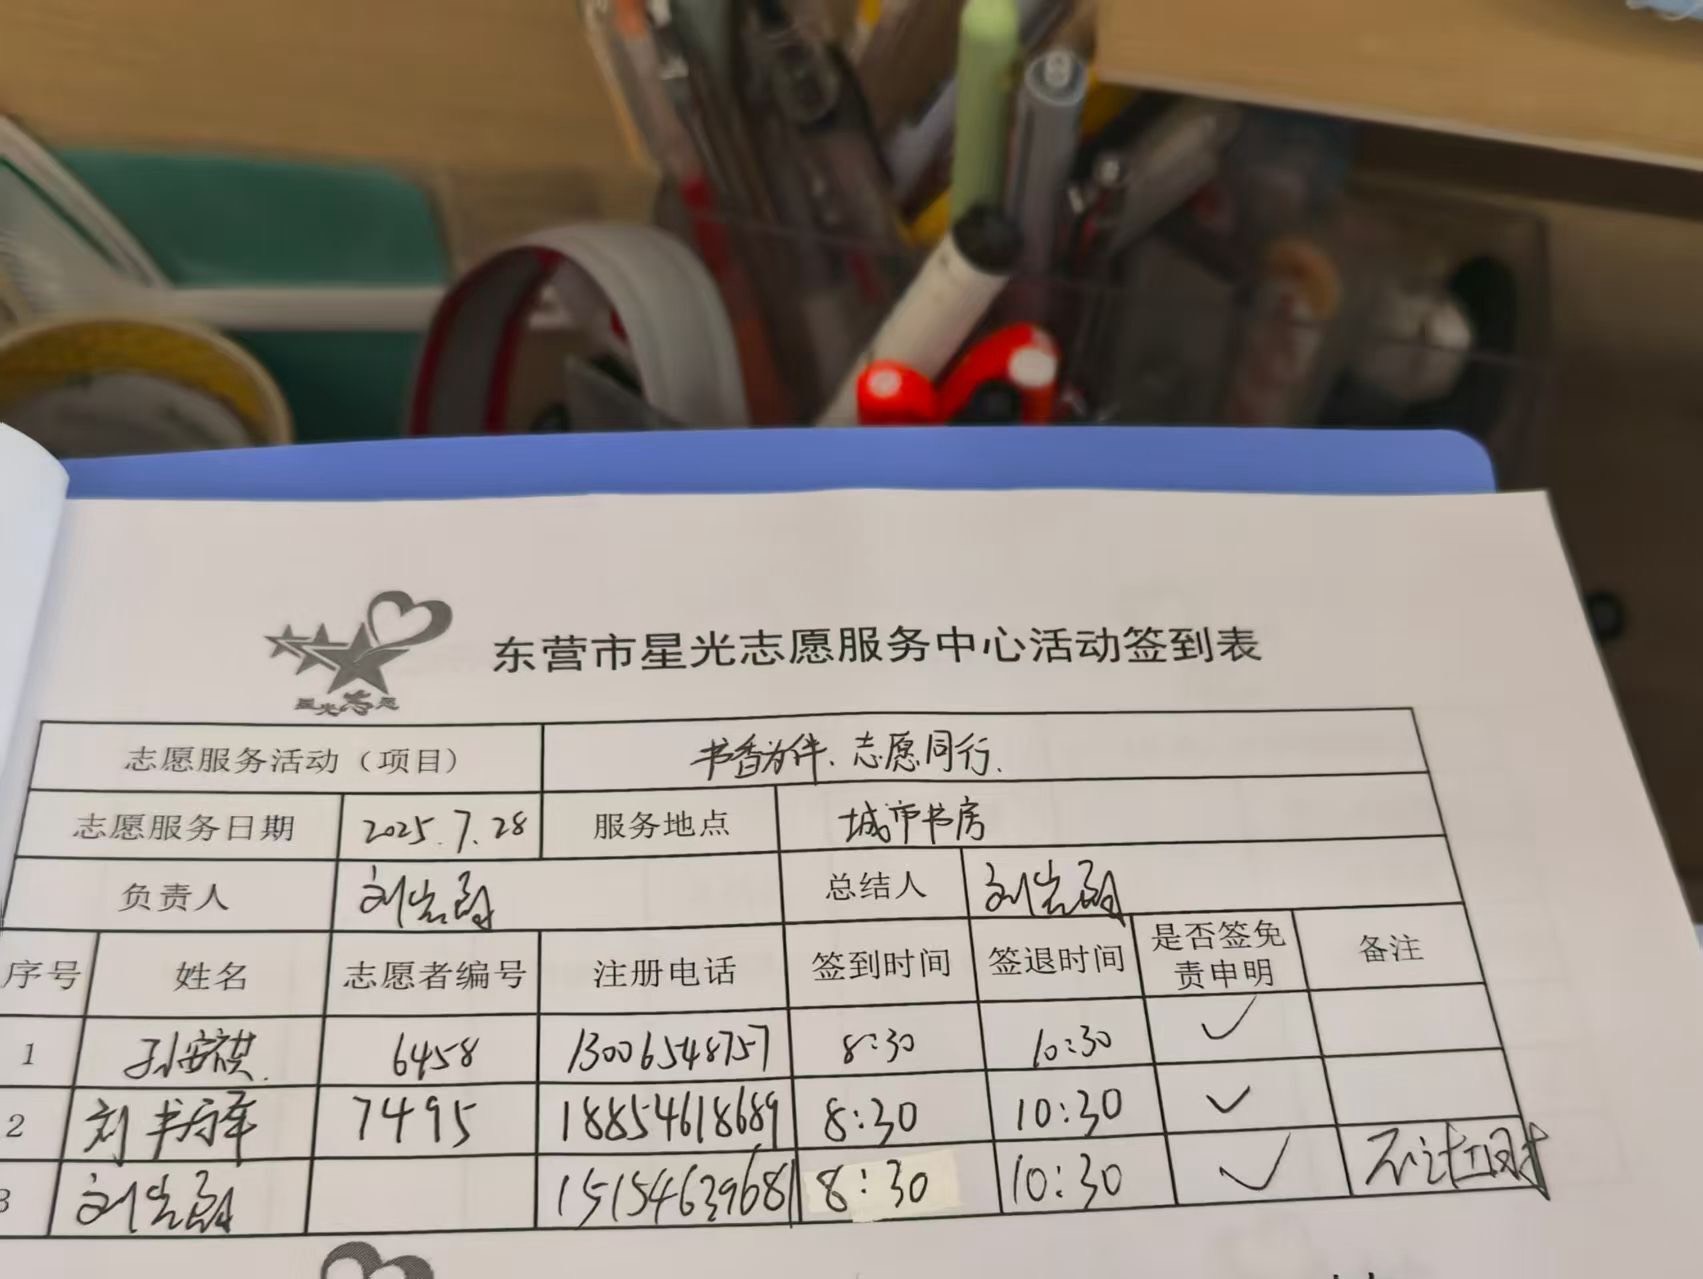 星光志愿
东营市星光志愿服务中心活动签到表
志愿服务活动（项目） 书香为伴、志愿同行.
志愿服务日期 2025.7.28 服务地点 城市书房
负责人 刘 总结人 刘
序号 姓名 志愿者编号 注册电话 签到时间 签退时间 是否签免责申明 备注
1 孙安祺. 6458 13006548757 8:30 10:30 ✓
2 刘书 7495 18854618689 8:30 10:30 ✓
3 刘 15154639681 8:30 10:30 ✓ 不计工时